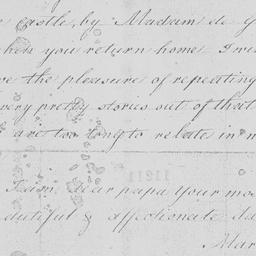 castle, by Madam de G
when you return home I wi
the pleasure of repeating
very pretty stories out of that
are too long to relate in m
11211
I am, dear papa your mos
dutiful & affectionate da
Mar